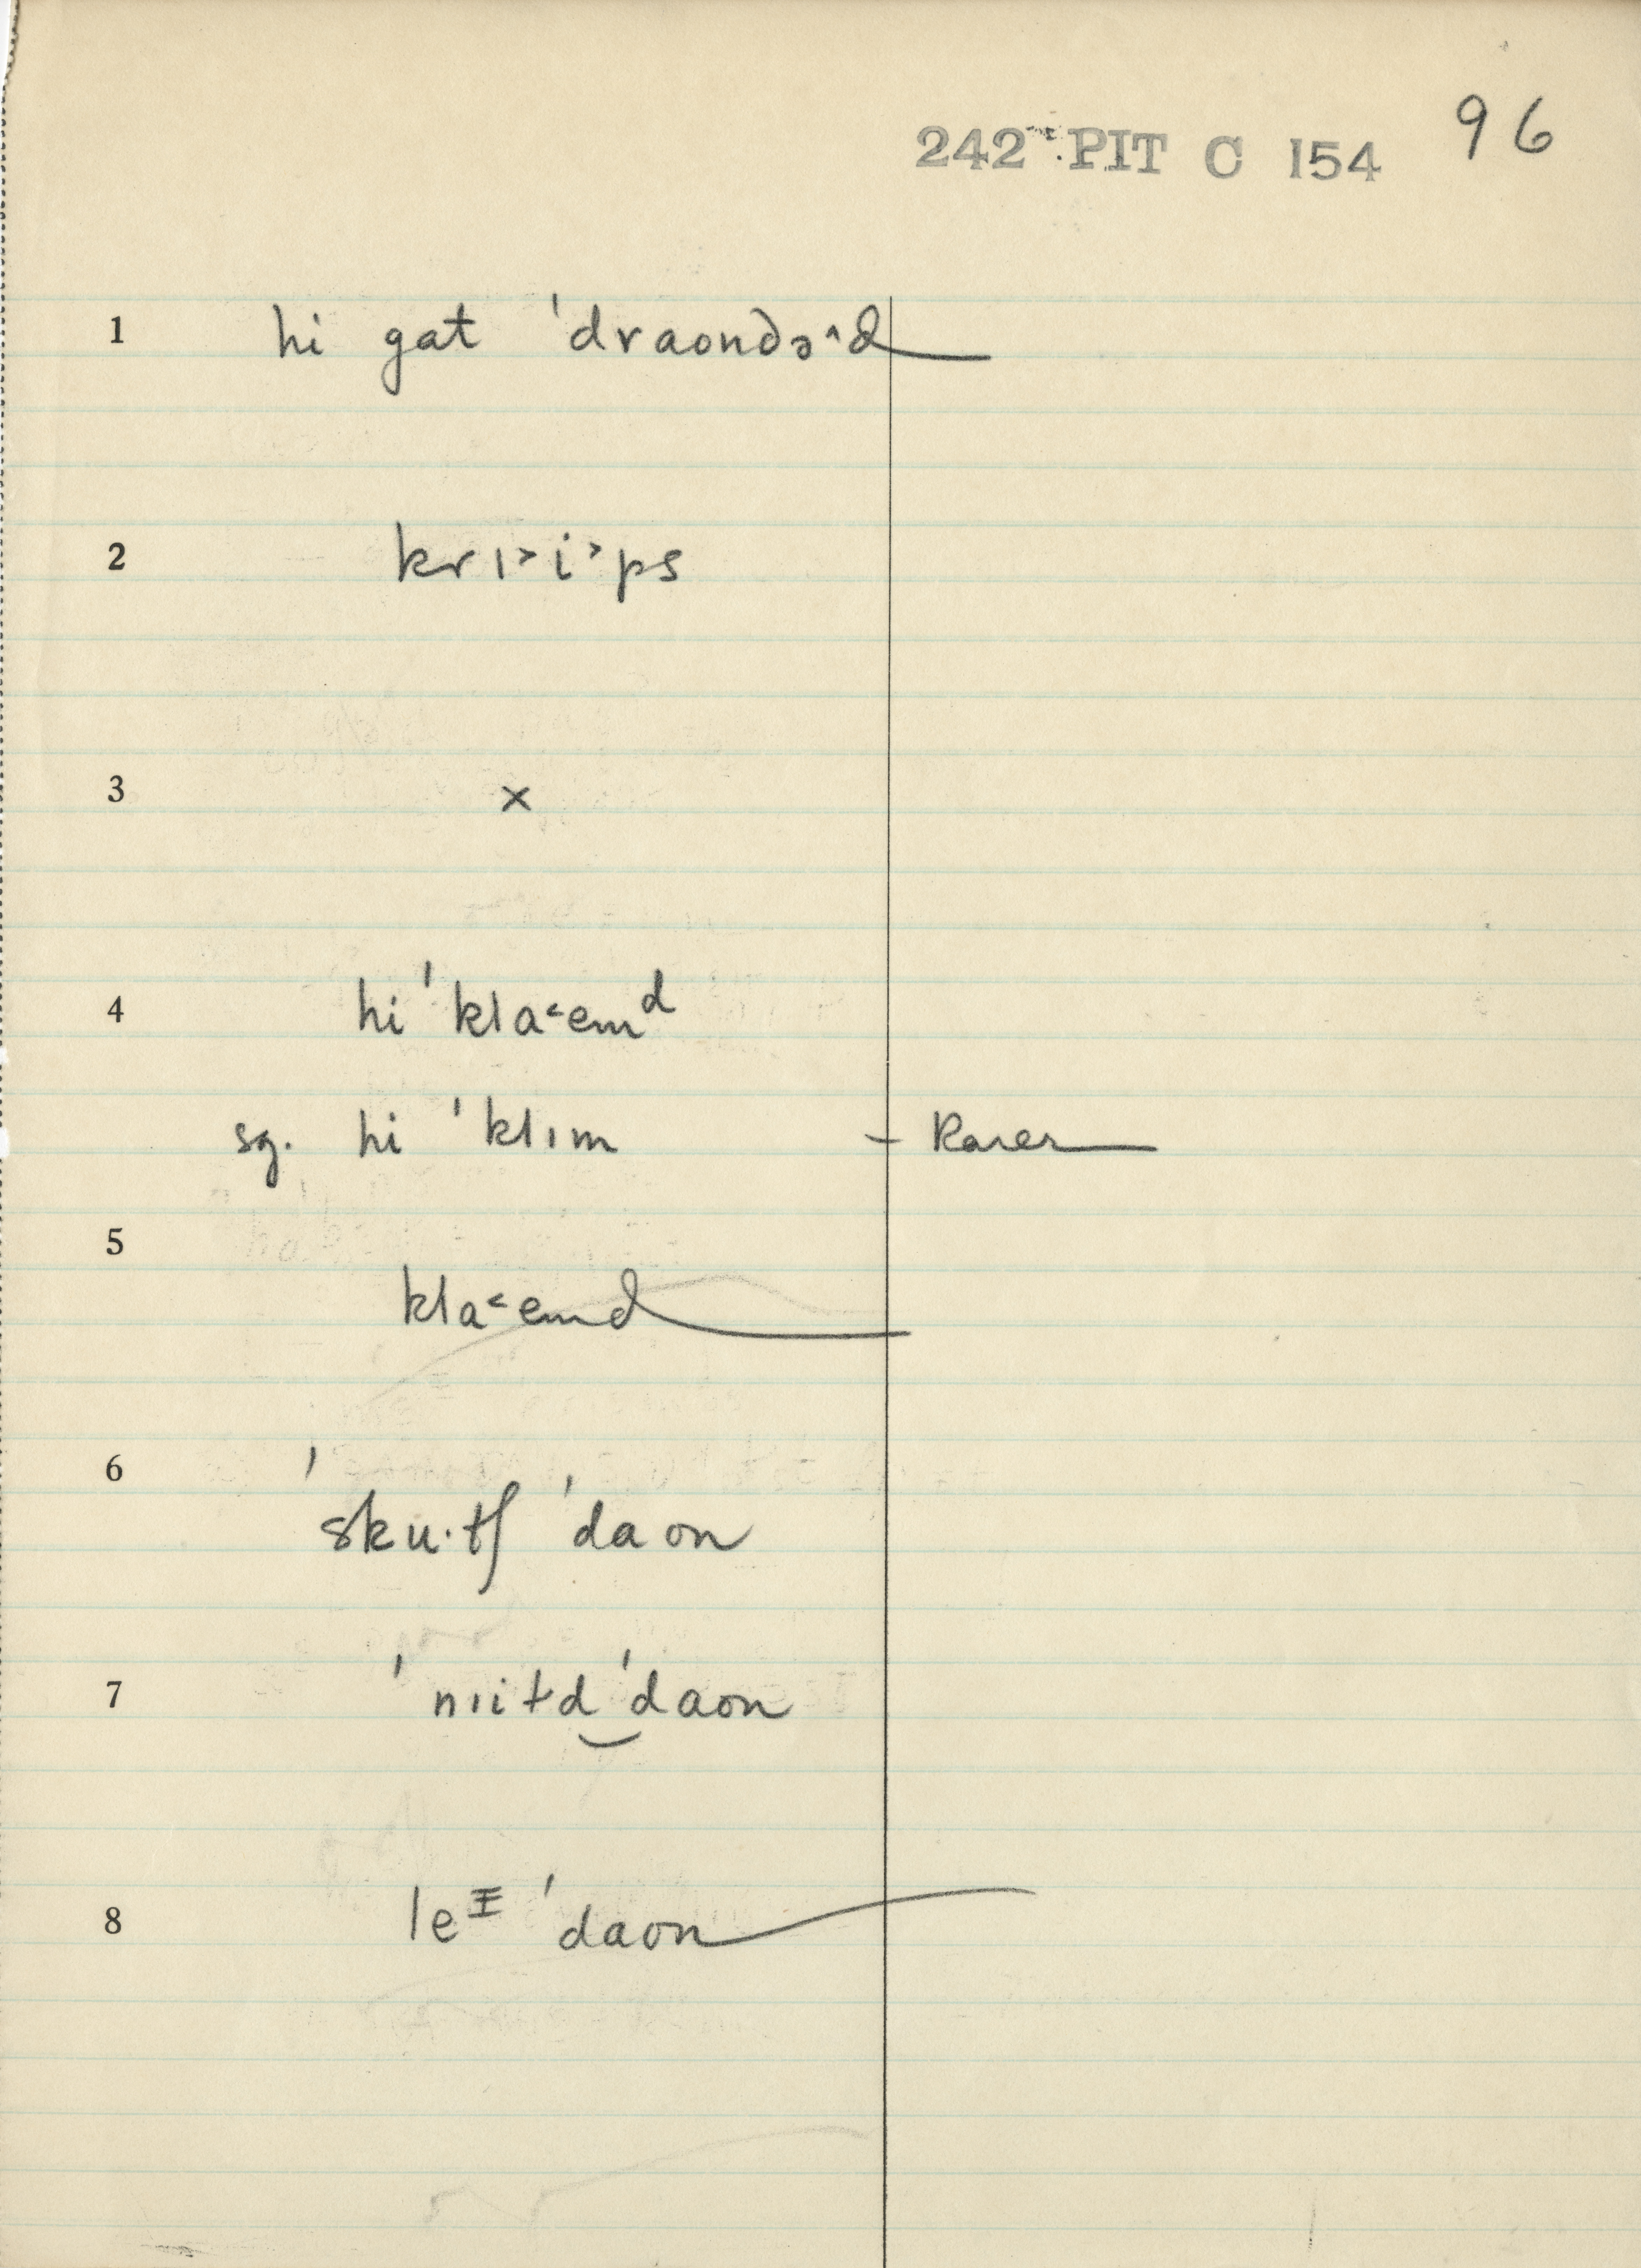 242 PIT C 154 96
1 hi gat ˈdraondəˆd
2 krı˃i˃ps
3 ×
4 hi ˈkla˂emᵈ
sg. hi ˈklım – Rarer
5 kla˂emd
6 ˈsku·tʃ ˈdaon
7 ˈnıitd‿ˈdaon
8 leᶦ ˈdaon